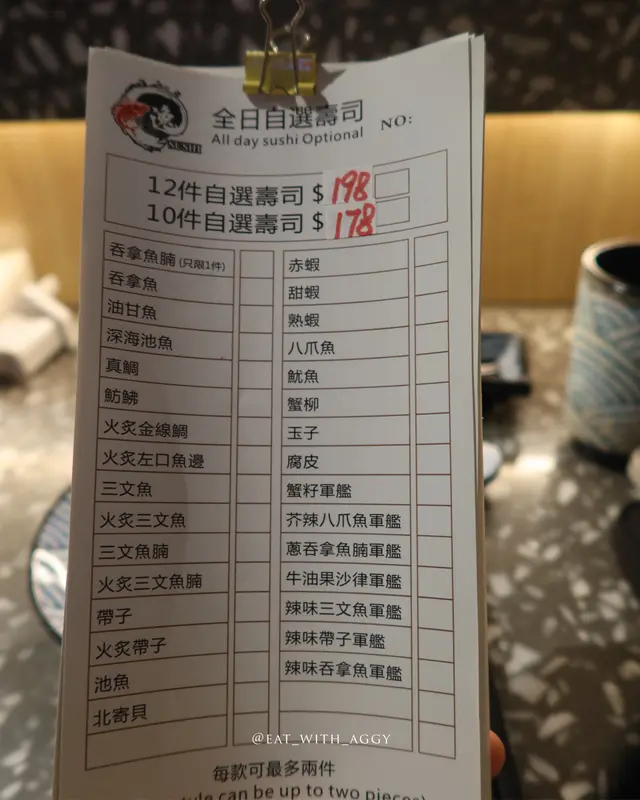 SUSHI
全日自選壽司
All day sushi Optional
NO:
12件自選壽司 $ 198
10件自選壽司 $ 178
吞拿魚腩 (只限1件)
吞拿魚
油甘魚
深海池魚
真鯛
魴鮄
火炙金線鯛
火炙左口魚邊
三文魚
火炙三文魚
三文魚腩
火炙三文魚腩
帶子
火炙帶子
池魚
北寄貝
赤蝦
甜蝦
熟蝦
八爪魚
魷魚
蟹柳
玉子
腐皮
蟹籽軍艦
芥辣八爪魚軍艦
蔥吞拿魚腩軍艦
牛油果沙律軍艦
辣味三文魚軍艦
辣味帶子軍艦
辣味吞拿魚軍艦
@EAT_WITH_AGGY
每款可最多兩件
can be up to two pieces)